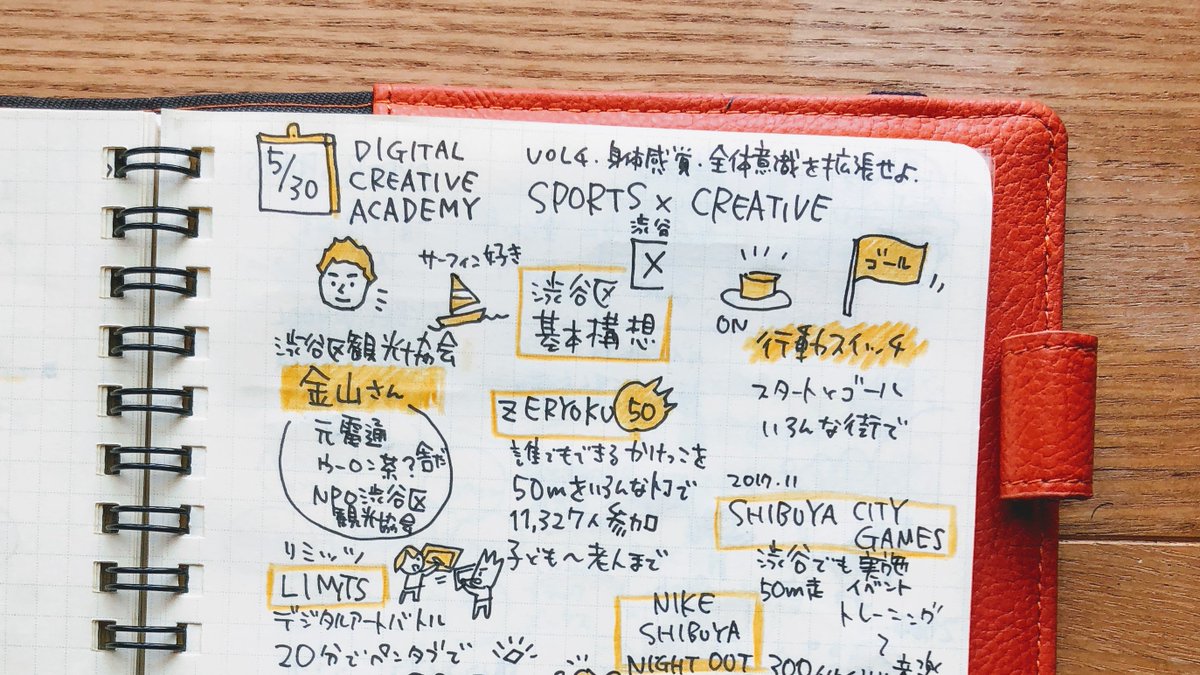 5/30
DIGITAL
CREATIVE
ACADEMY
VOL4. 身体感覚・全体意識を拡張せよ.
SPORTS × CREATIVE
サーフィン好き
渋谷区観光協会
金山さん
元電通
ウーロン茶?舎だ
NPO渋谷区
観光協会
リミッツ
LIMTS
デジタルアートバトル
20分でペンタブで
渋谷
X
渋谷区
基本構想
ZERYOKU 50
誰でもできるかけっこを
50mをいろんなトコで
11,327人参加
子ども〜老人まで
NIKE
SHIBUYA
NIGHT OUT
ゴール
ON
行動スイッチ
スタートとゴール
いろんな街で
2017.11
SHIBUYA CITY
GAMES
渋谷でも実施
50m走 イベント
トレーニング
300
音楽